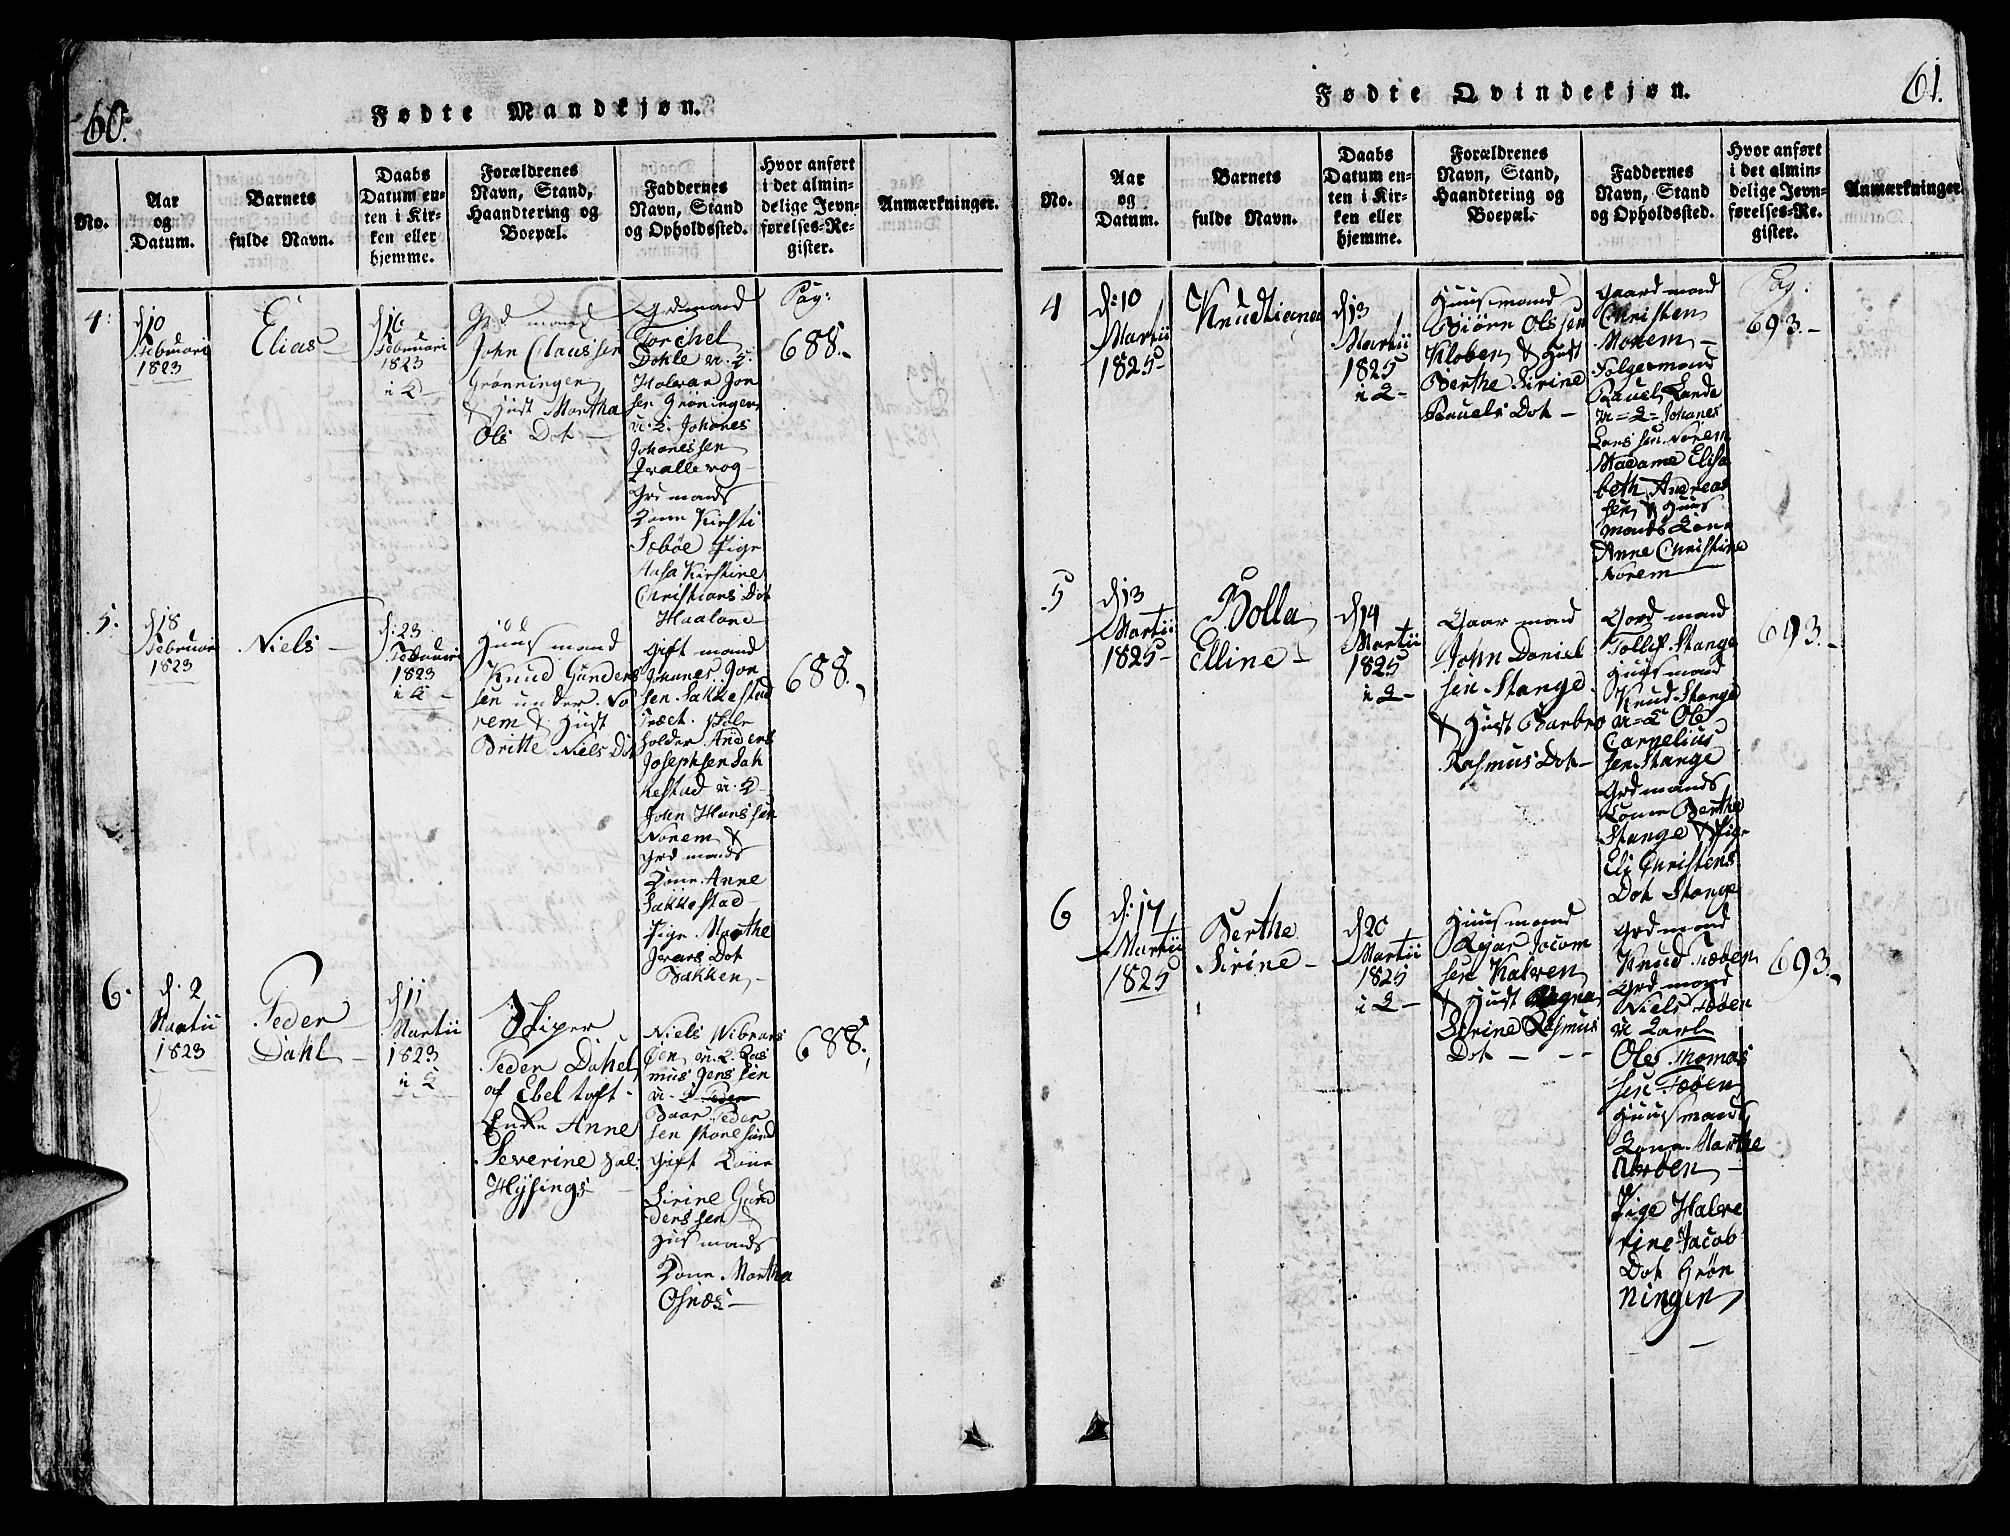 60.
Fødte Mandkjøn.
No.
Aar
og
Datum.
Barnets
fulde Navn.
Daabs
Datum en-
ten i Kir-
ken eller
hjemme.
Forældrenes
Navn, Stand,
Haandtering og
Boepæl.
Faddernes
Navn, Stand
og Opholdssted.
Hvor anført
i det almin-
delige Jevn-
førelses-Re-
gister.
Anmærkninger.
4.
d 10
Februari
1823
Elias
d 16
Februari
1823
i K
Grd mand
John Claussen
Grønningen
& Hust Martha
Ols Dot
Grdmand
Torchel
Dohle u. K.
Halvar Jon
sen Grøningen
u. K. Johanes
Johanessen
Qvallevog
Grd mands
Kone Kirsti
Sebøe Pige
Aasa Kirstine
Christians Dot
Haaland
Pag:
688.
5.
d 18
Februari
1823
Niels
d: 23
Februari
1823
i K
Huusmand
Knud Gunders
sen under No
rem & Hust
Britte Niels Dot
Gift mand
Johanes Jon
sen Sakkestad
Træet.
holder Anders
Josephsen Sak
kestad u. K
John Hanssen
Norem &
Grd mands
Kone Anne
Sakkestad
Pige Marthe
Ivars Dot
Bakken
688.
6.
d. 2
Martii
1823
Peder
Dahl
d 11
Martii
1823
i K
Skiper
Peder Dahel
af Ebeltoft
Enke Anne
Severine Sal:
Hysings
Niels Wibrans
sen u. K. Ras
mus Jenssen
u. K Peder
Baar Peder
sen Skaresund
Gift Kone
Sirine Gun
derssen
Husmands
Kone Martha
Osnæs
688.
61.
Fødte Qvindekjøn.
No.
Aar
og
Datum.
Barnets
fulde Navn.
Daabs
Datum en-
ten i Kir-
ken eller
hjemme.
Forældrenes
Navn, Stand,
Haandtering og
Boepæl.
Faddernes
Navn, Stand
og Opholdssted.
Hvor anført
i det almin-
delige Jevn-
førelses-Re-
gister.
Anmærkninger.
4
d: 10
Martii
1825
Knudtiana
d 13
Martii
1825
i K
Huusmand
Biörn Olssen
Kloben & Hust
Berthe Sirine
Pauels Dot
Gaard mand
Christen
Norem
Følgemand
Pauel Lande
u = K = Johanes
Larssen Norem
Madame Elisa
beth Andreas
sen & Huus
mands Kone
Anne Christine
Norem
Pag.
693.
5
d 13
Martii
1825
Bolla
Elline
d 14
Martii
1825
i K
Gaar mand
John Daniel
sen Stange
& Hust Barbro
Rasmus Dot
Gord mand
Tollef Stange
Huusmand
Knud Stange
u = K Ole
Cornelius
sen Stange
Grd mands
Kone Berthe
Stange & Pige
Eli Christens
Dot Stange
693.
6
d: 17
Martii
1825
Berthe
Sirine
d 20
Martii
1825
i K
Huusmand
Jacom
sen Kalven
& Hust Ragna
Sirine Rasmus
Dot
Grd mand
Knud Fæøen
Grd mand
Niels Fæøen
u Karl
Ole Thomas
sen Fæøen
Huusmands
Kone Marthe
Pige Halve
rine Jacob
Dot Grön
ningen
693.